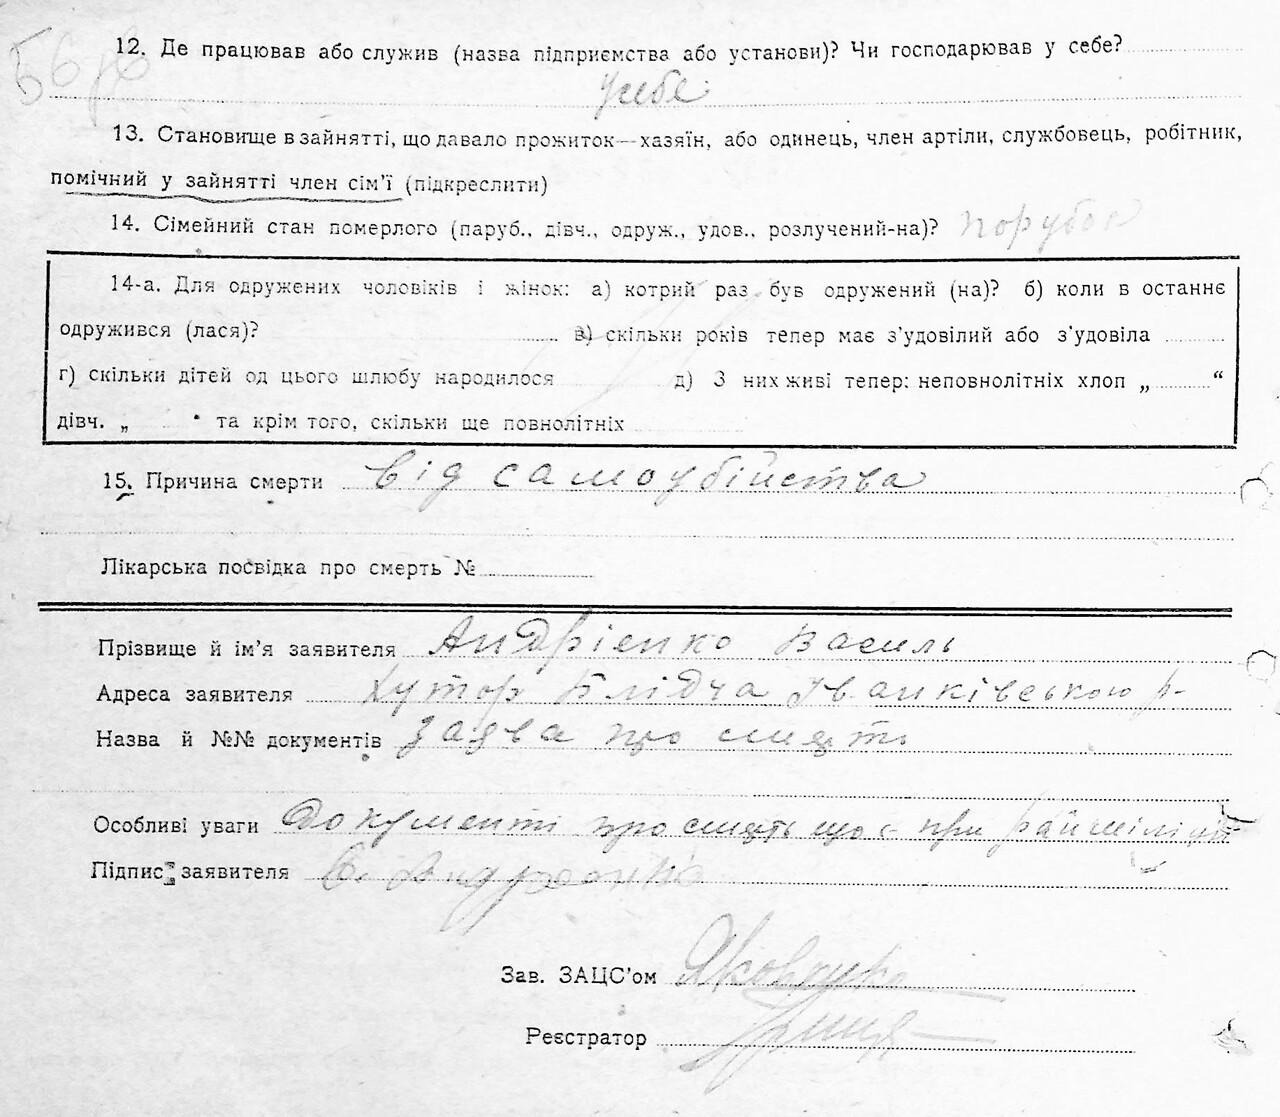 56
12. Де працював або служив (назва підприємства або установи)? Чи господарював у себе?
у себе
13. Становище в зайнятті, що давало прожиток—хазяїн, або одинець, член артіли, службовець, робітник,
помічний у зайнятті член сім'ї (підкреслити)
14. Сімейний стан померлого (паруб., дівч., одруж., удов., розлучений-на)? порубок
14-а. Для одружених чоловіків і жінок: а) котрий раз був одружений (на)? б) коли в останнє
одружився (лася)? в) скільки років тепер має з'удовілий або з'удовіла
г) скільки дітей од цього шлюбу народилося д) З них живі тепер: неповнолітніх хлоп „ “
дівч. „ “ та крім того, скільки ще повнолітніх
15. Причина смерти від самоубійства
Лікарська посвідка про смерть №
Прізвище й ім'я заявителя Андрієнко Василь
Адреса заявителя Хутор Блідча Іванківського р-
Назва й №№ документів заява про смерть
Особливі уваги документі про смерть що є при райміліції
Підпис заявителя В. Андрієнко
Зав. ЗАЦС'ом
Реєстратор